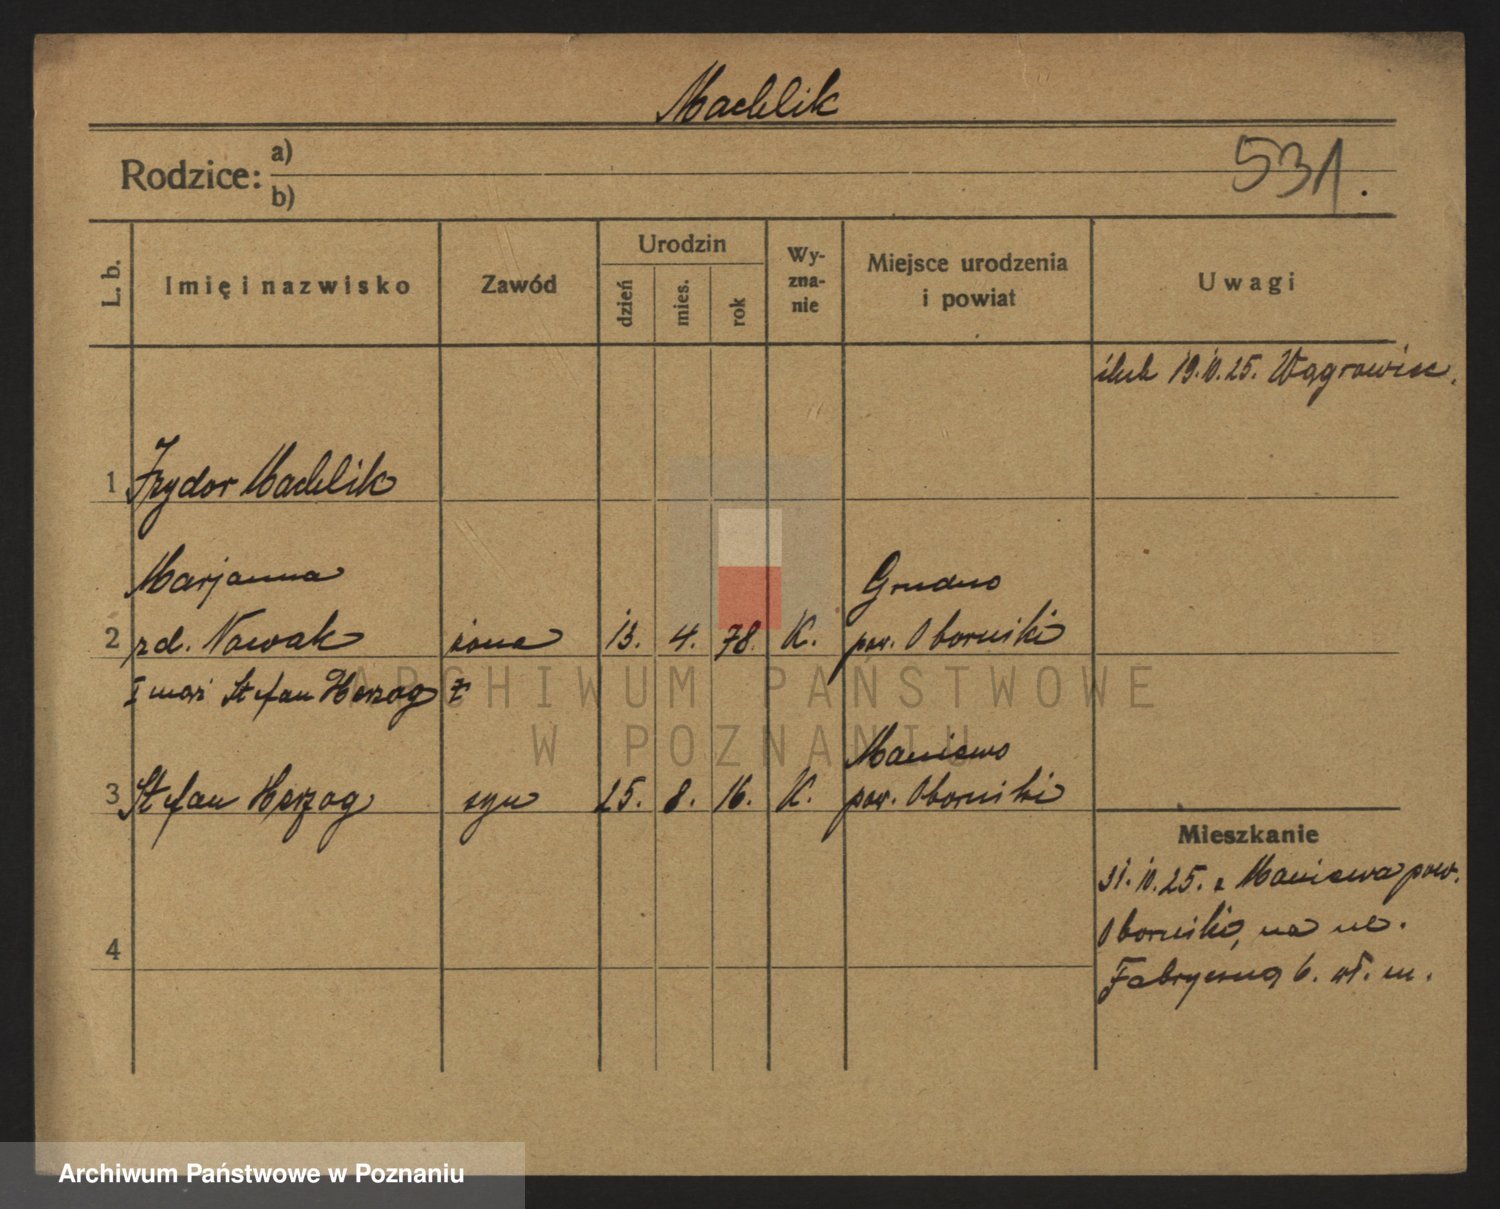 Machlik
Rodzice: a)
b)
531.
L. b.
Imię i nazwisko
Zawód
Urodzin
dzień
mies.
rok
Wy-
zna-
nie
Miejsce urodzenia
i powiat
Uwagi
ślub 19.10.25. Wągrowiec.
1 Izydor Machlik
Marjanna
2 zd. Nowak żona 13. 4. 78. K. Grudno
pow. Obornicki
I mąż Stefan Herzog †
3 Stefan Herzog syn 25. 8. 16. K. Maniewo
pow. Obornicki
Mieszkanie
31.10.25. z Maniewa pow.
Obornicki, na ul.
Fabryczną 6. wł. m.
4
ARCHIWUM PAŃSTWOWE
W POZNANIU
Archiwum Państwowe w Poznaniu